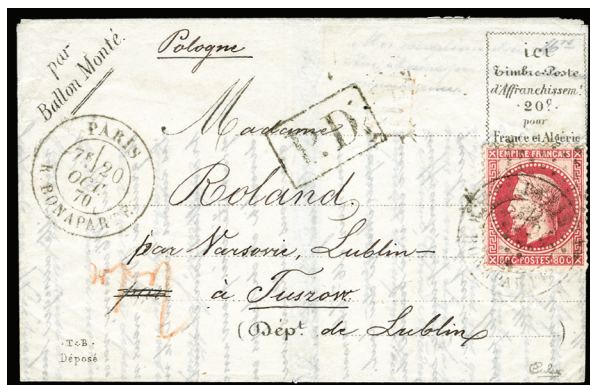 par
Ballon Monté.
Pologne
ici
Timbre-Poste
d'Affranchissemt
20c.
pour
France et Algérie
PARIS
7E/20
OCT.
70
R. BONAPARTE
P.D.
EMPIRE FRANÇAIS
80C POSTES 80C
Madame
Roland,
par Varsovie, Lublin
à Tuszow
(Dépt. de Lublin)
T & B
Déposé